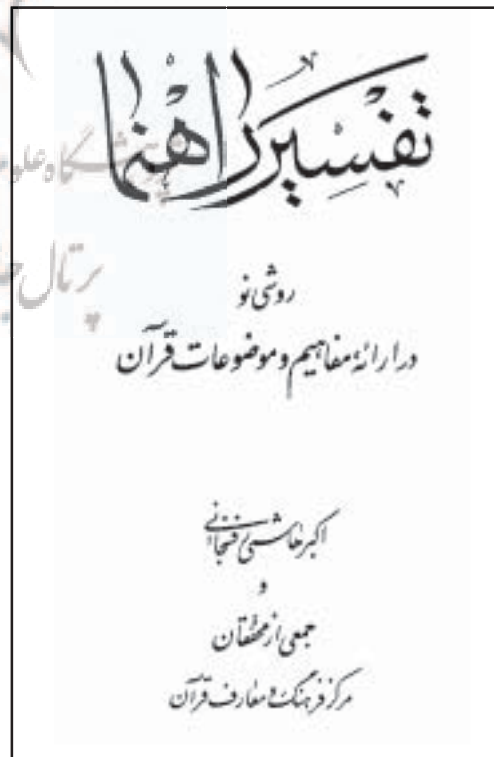 تفسیر راهنما
روشی نو
در ارائه مفاهیم و موضوعات قرآن
اکبر هاشمی رفسنجانی
و
جمعی از محققان
مرکز فرهنگ و معارف قرآن
پرتال